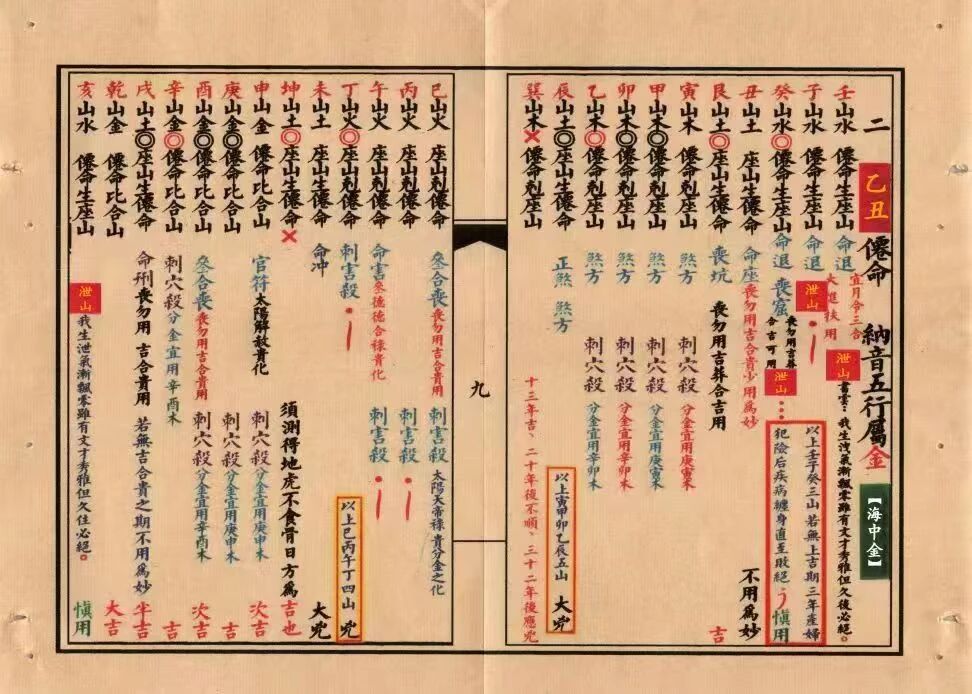 二 乙丑 僊命 納音五行屬金 【海中金】
壬山水 僊命生座山 命退 宜月令三合
大進扶用
泄山 書雲：我生洩氣漸飄零雖有文才秀雅但久後必絕。
子山水 僊命生座山 命退 泄山
癸山水◎ 僊命生座山 命退 喪窟 喪勿用吉葬合吉可用 泄山
以上壬子癸三山若無上吉期三年産婦
犯險后疾病纏身直至敗絕 慎用
丑山土 座山生僊命 命座 喪勿用吉合貴少用爲妙 不用爲妙
艮山土◎ 座山生僊命 喪坑 喪勿用吉葬合吉用 吉
寅山木 僊命剋座山 煞方 刺穴殺 分金宜用庚寅木
甲山木◎ 僊命剋座山 煞方 刺穴殺 分金宜用庚寅木
卯山木◎ 僊命剋座山 煞方 刺穴殺 分金宜用辛卯木
乙山木◎ 僊命剋座山 煞方 刺穴殺 分金宜用辛卯木
辰山土◎ 座山生僊命 正煞 煞方
以上寅甲卯乙辰五山 大兇
巽山木× 僊命剋座山 十三年吉、二十年後不順、三十二年後應兇
九
巳山火 座山剋僊命 叄合喪 喪勿用吉合貴用 刺害殺 太陽天帝祿貴分金之化
丙山火 座山剋僊命 刺害殺
午山火 座山剋僊命 命害 叄德德合祿貴化 刺害殺
丁山火◎ 座山剋僊命 刺害殺
以上巳丙午丁四山 兇
未山土 座山生僊命 命冲 大兇
坤山土◎ 座山生僊命× 須測得地虎不食骨日方爲吉也
申山金 僊命比合山 官符 太陽解赦貴化 刺穴殺 分金宜用庚申木 次吉
庚山金◎ 僊命比合山 刺穴殺 分金宜用庚申木 吉
酉山金◎ 僊命比合山 叄合喪 喪勿用吉合貴用 刺穴殺 分金宜用辛酉木 次吉
辛山金◎ 僊命比合山 刺穴殺 分金宜用辛酉木 吉
戌山土◎ 座山生僊命 命刑 喪勿用 吉合貴用 若無吉合貴之期不用爲妙 半吉
乾山金 僊命比合山 大吉
亥山水 僊命生座山 泄山 我生泄氣漸飄零雖有文才秀雅但久住必絕。 慎用